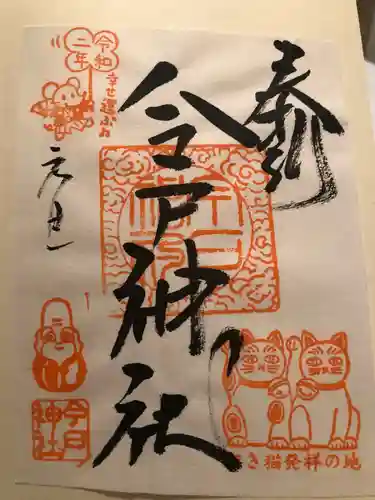 奉拝
今戸神社
令和
二年
幸せ運ぶね
元旦
今戸
神社
き猫発祥の地